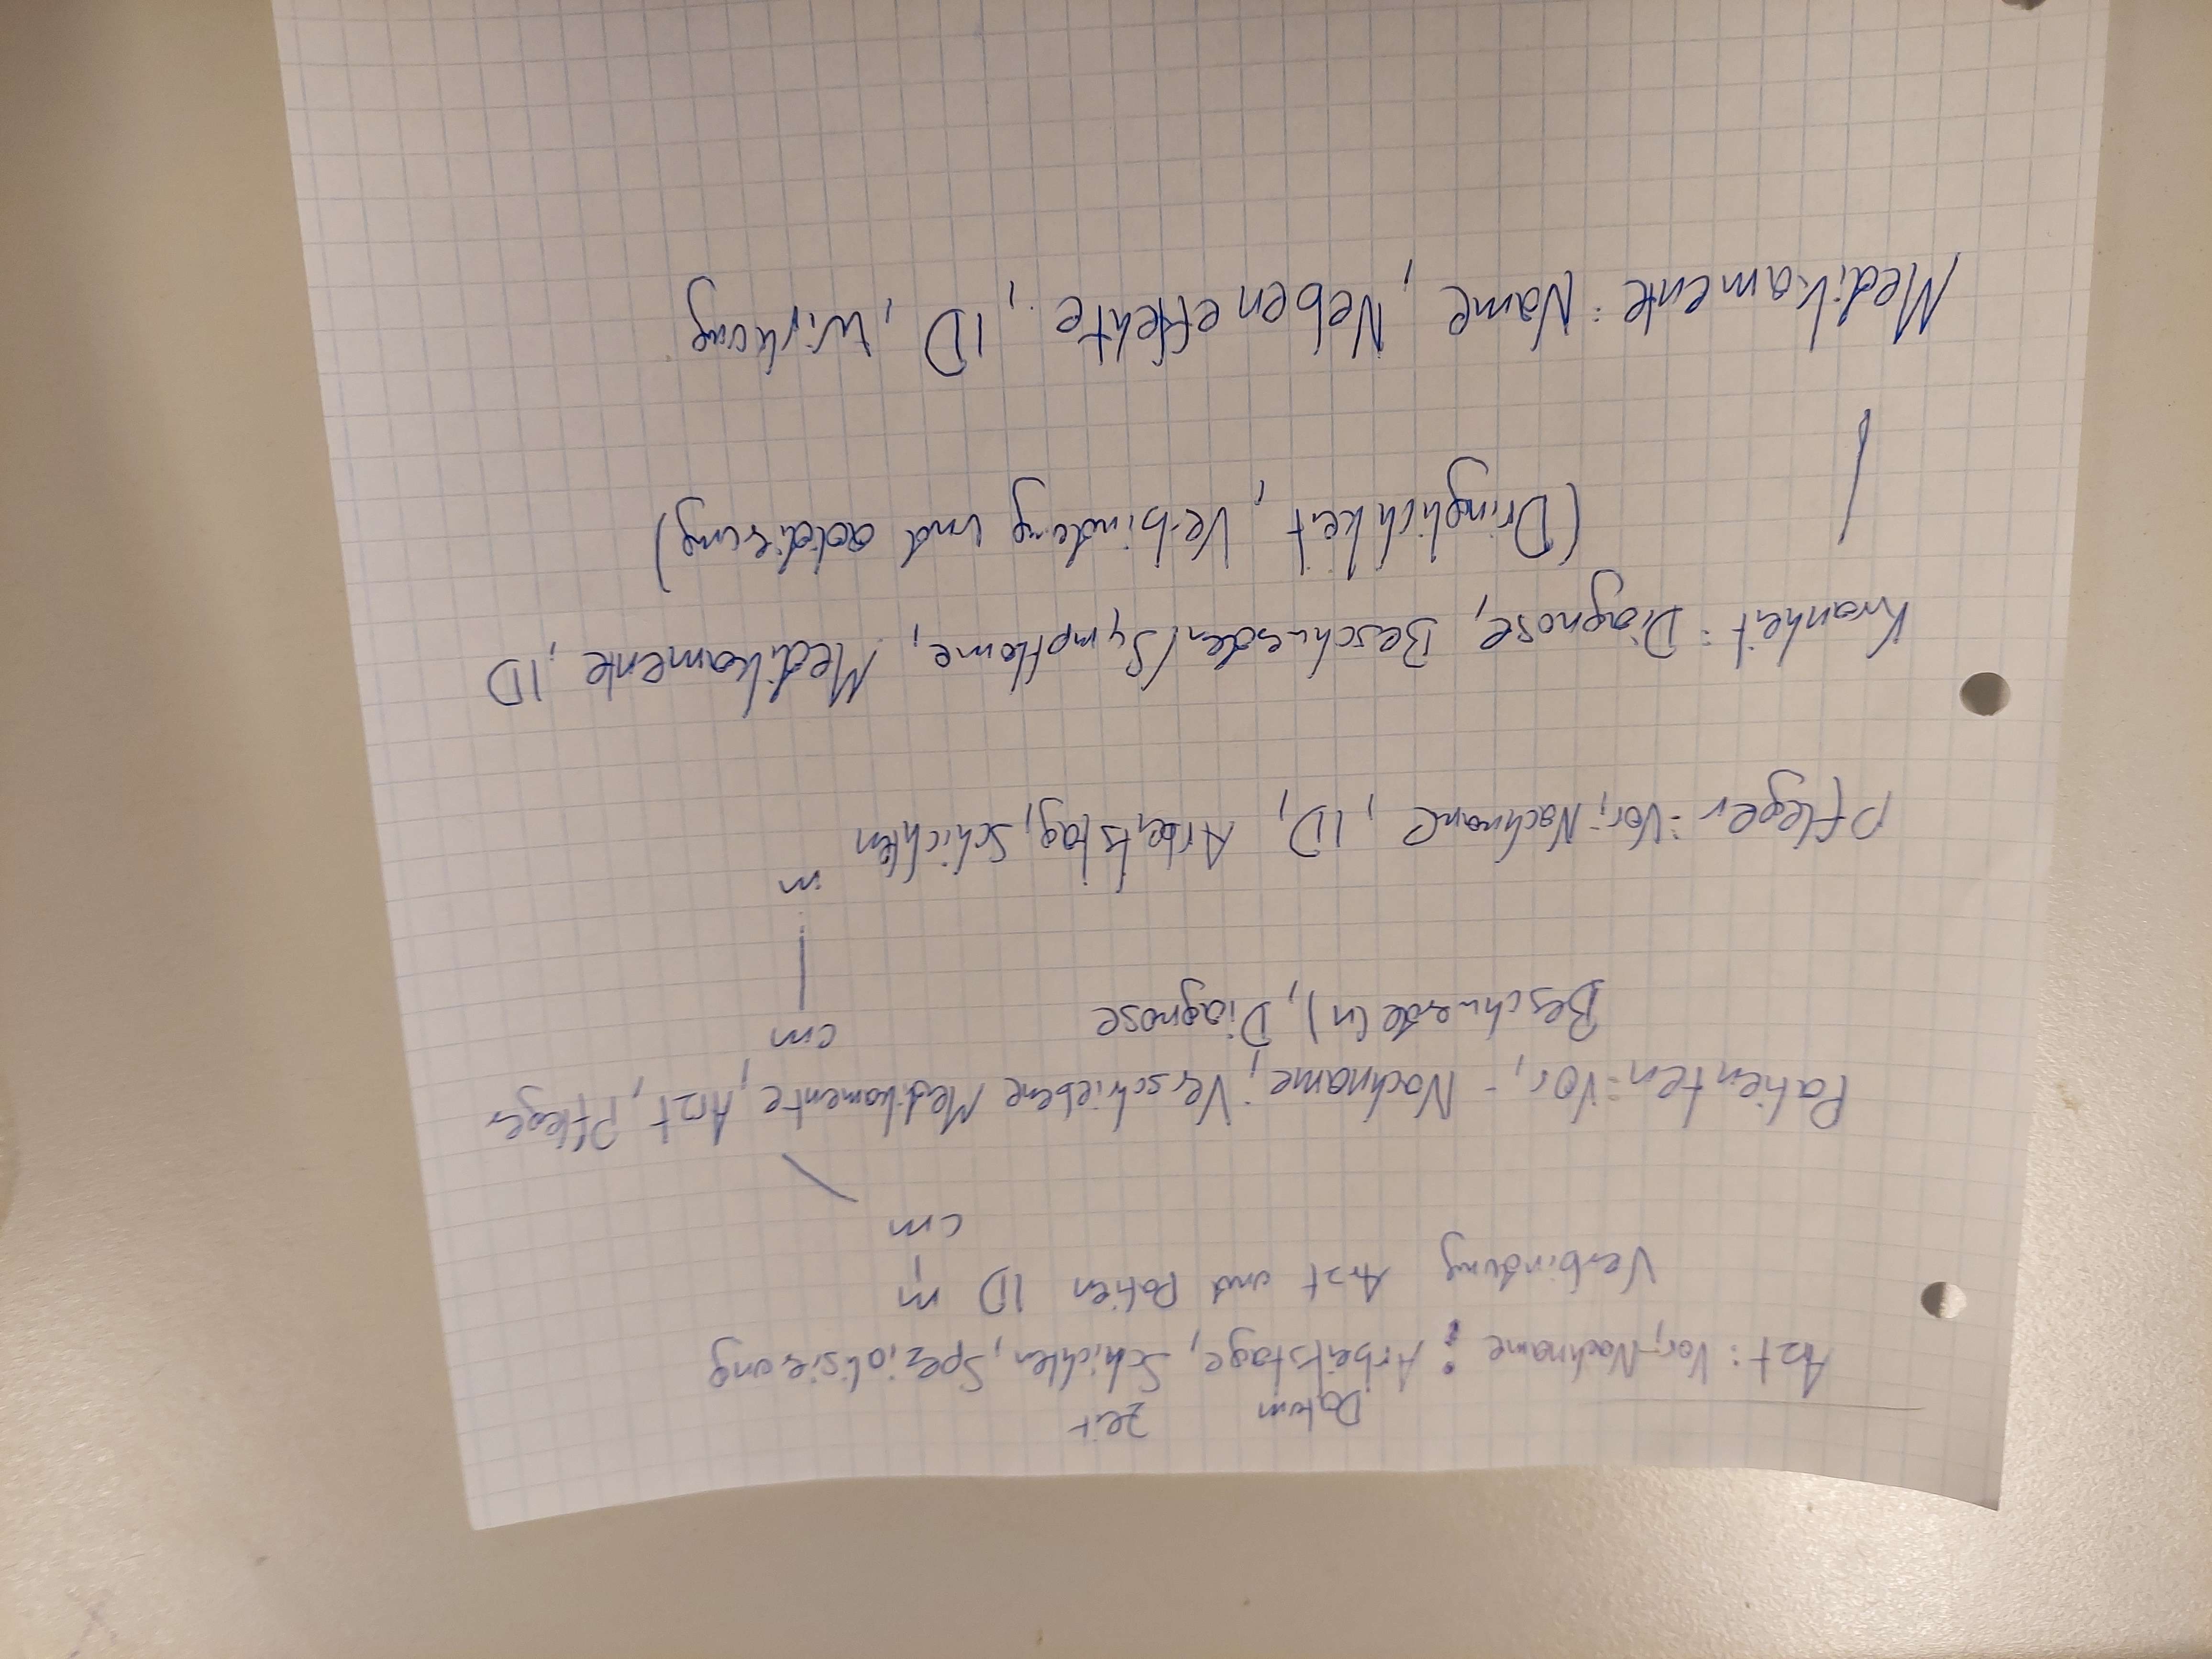 Datum Zeit
Arzt: Vor,-Nachname ; Arbeitstage, Schichten, Spezialisierung
Verbindung Arzt und Patien ID m
cm
Patienten: Vor,- Nachname; Verschriebene Medikamente, Arzt, Pfleger
Beschwerde(n), Diagnose cm
m
Pfleger: Vor,-Nachname, ID, Arbeitstag, Schichten
Kranheit: Diagnose, Beschwerden/Symptome, Medikamente, ID
(Dringlichkeit, Verbindung und addierung)
Medikamente: Name, Nebeneffekte, ID, Wirkung